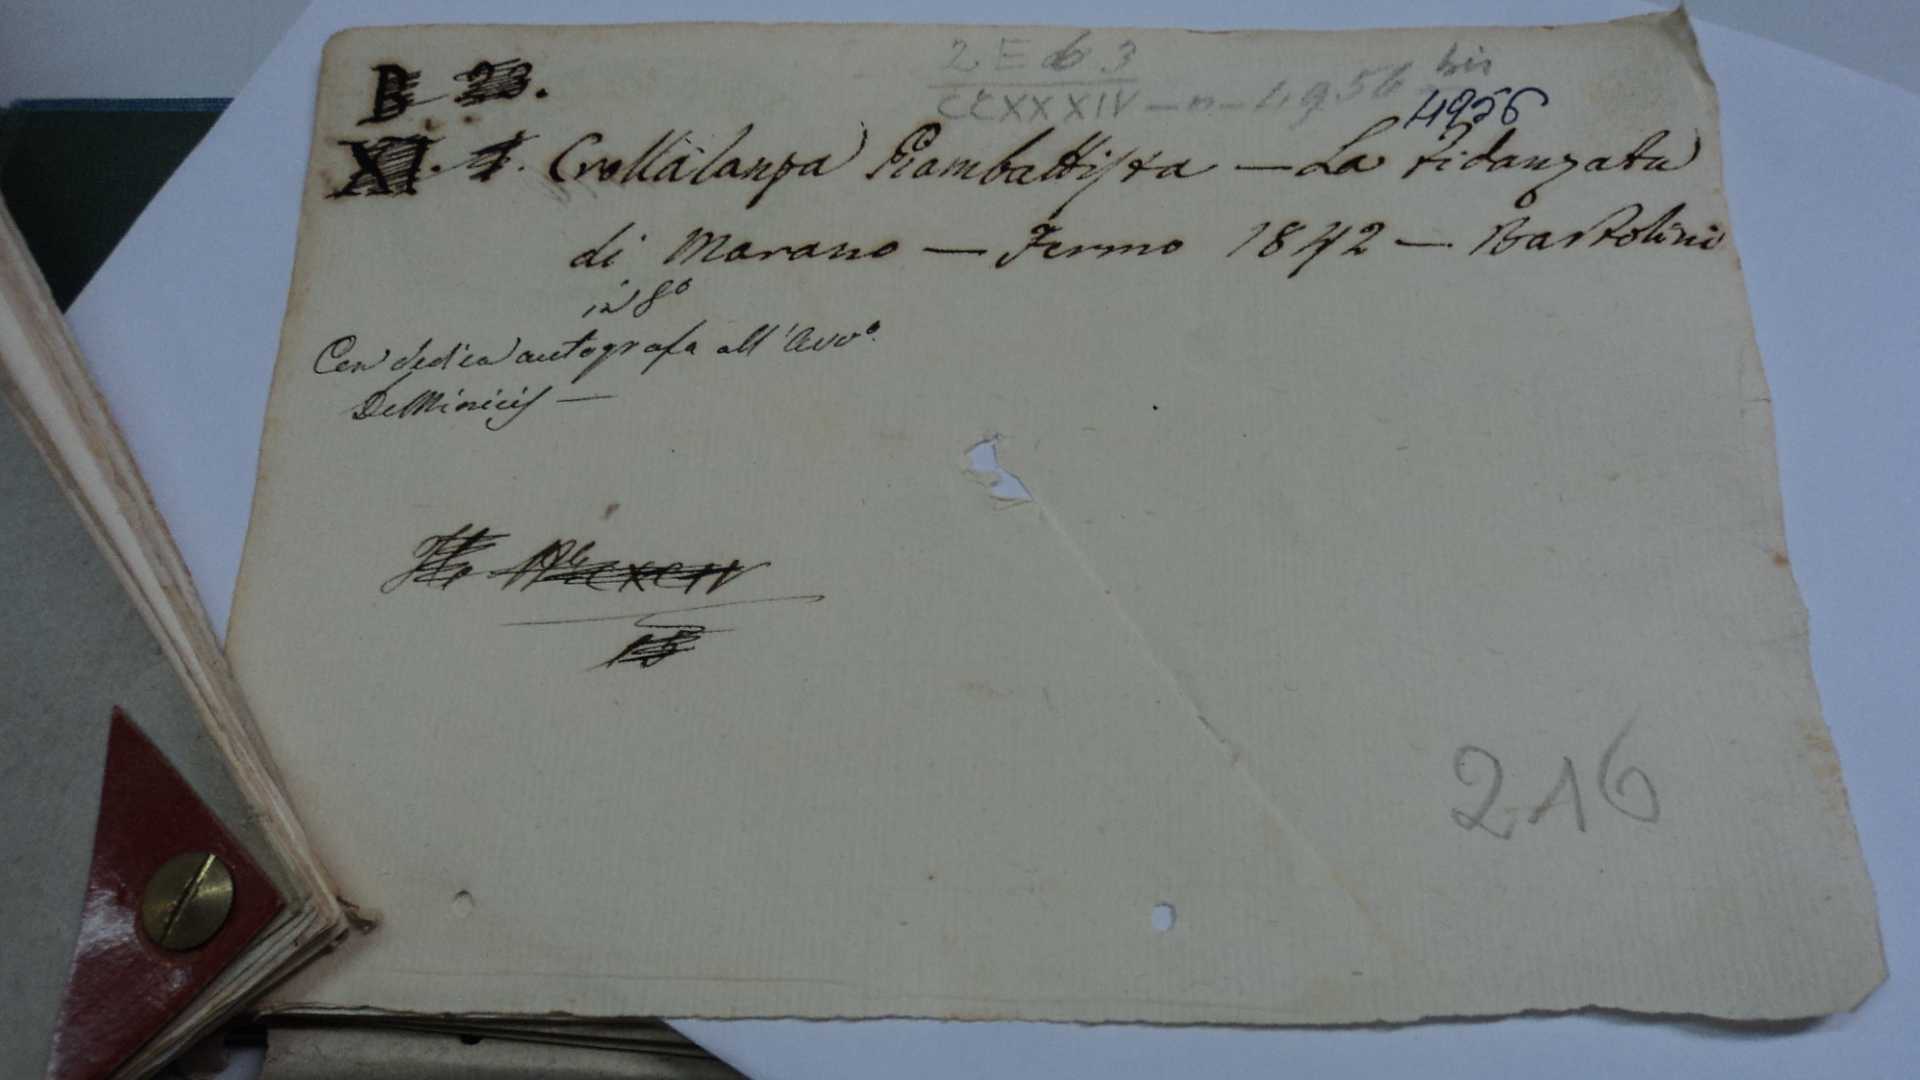 B 23.
2 E b 3
CCXXXIV - n - 4956 bis
4956
XI. 1. Crollalanza Giambattista - La Fidanzata
di Marano - Fermo 1842 - Bartolini
in 8°
Con dedica autografa all'Avv°.
DeMinicis -
CXCIV
15
216